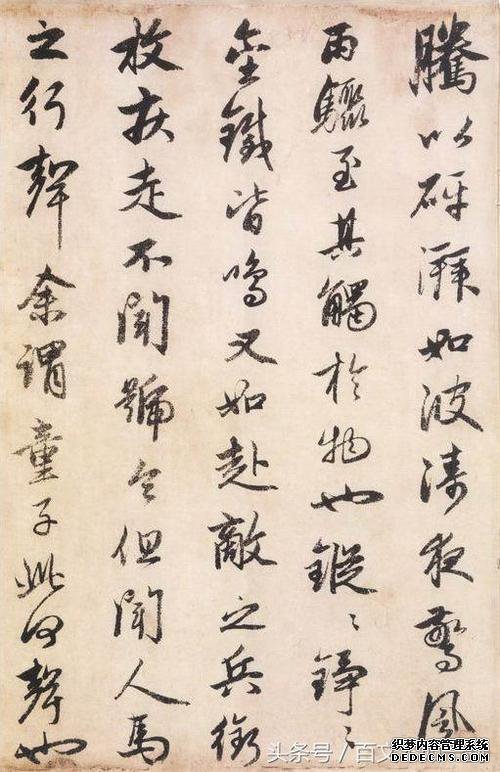 騰以砰湃如波濤夜驚風
雨驟至其觸於物也鏦〻錚〻
金鐵皆鳴又如赴敵之兵銜
枚疾走不聞號令但聞人馬
之行聲余謂童子此何聲也
头条号/百文
织梦内容管理系统
DEDECMS.COM